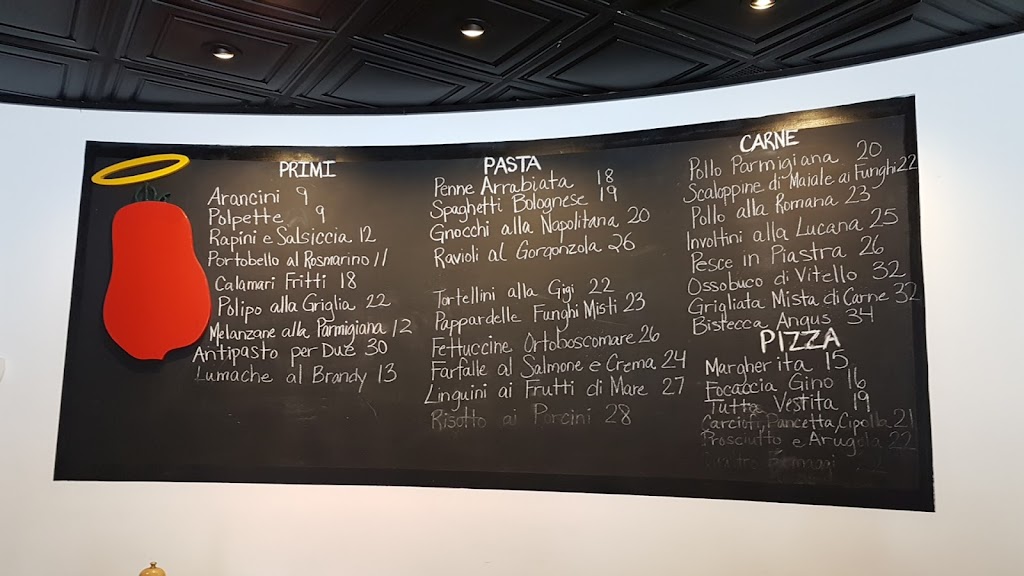 PRIMI
Arancini 9
Polpette 9
Rapini e Salsiccia 12
Portobello al Rosmarino 11
Calamari Fritti 18
Polipo alla Griglia 22
Melanzane alla Parmigiana 12
Antipasto per Due 30
Lumache al Brandy 13
PASTA
Penne Arrabiata 18
Spaghetti Bolognese 19
Gnocchi alla Napolitana 20
Ravioli al Gorgonzola 26
Tortellini alla Gigi 22
Pappardelle Funghi Misti 23
Fettuccine Ortoboscomare 26
Farfalle al Salmone e Crema 24
Linguini ai Frutti di Mare 27
Risotto ai Porcini 28
CARNE
Pollo Parmigiana 20
Scaloppine di Maiale ai Funghi 22
Pollo alla Romana 23
Involtini alla Lucana 25
Pesce in Piastra 26
Ossobuco di Vitello 32
Grigliata Mista di Carne 32
Bistecca Angus 34
PIZZA
Margherita 15
Focaccia Gino 16
Tutta Vestita 19
Carciofi, Pancetta, Cipolla 21
Prosciutto e Arugola 22